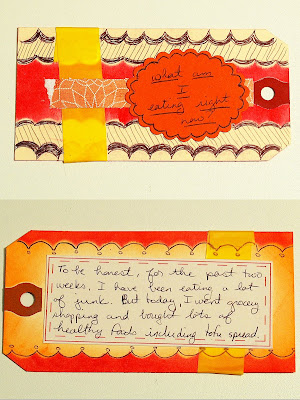 what am
I
eating right
now?
To be honest, for the past two
weeks, I have been eating a lot
of junk. But today, I went grocery
shopping and bought lots of
healthy foods including tofu spread.